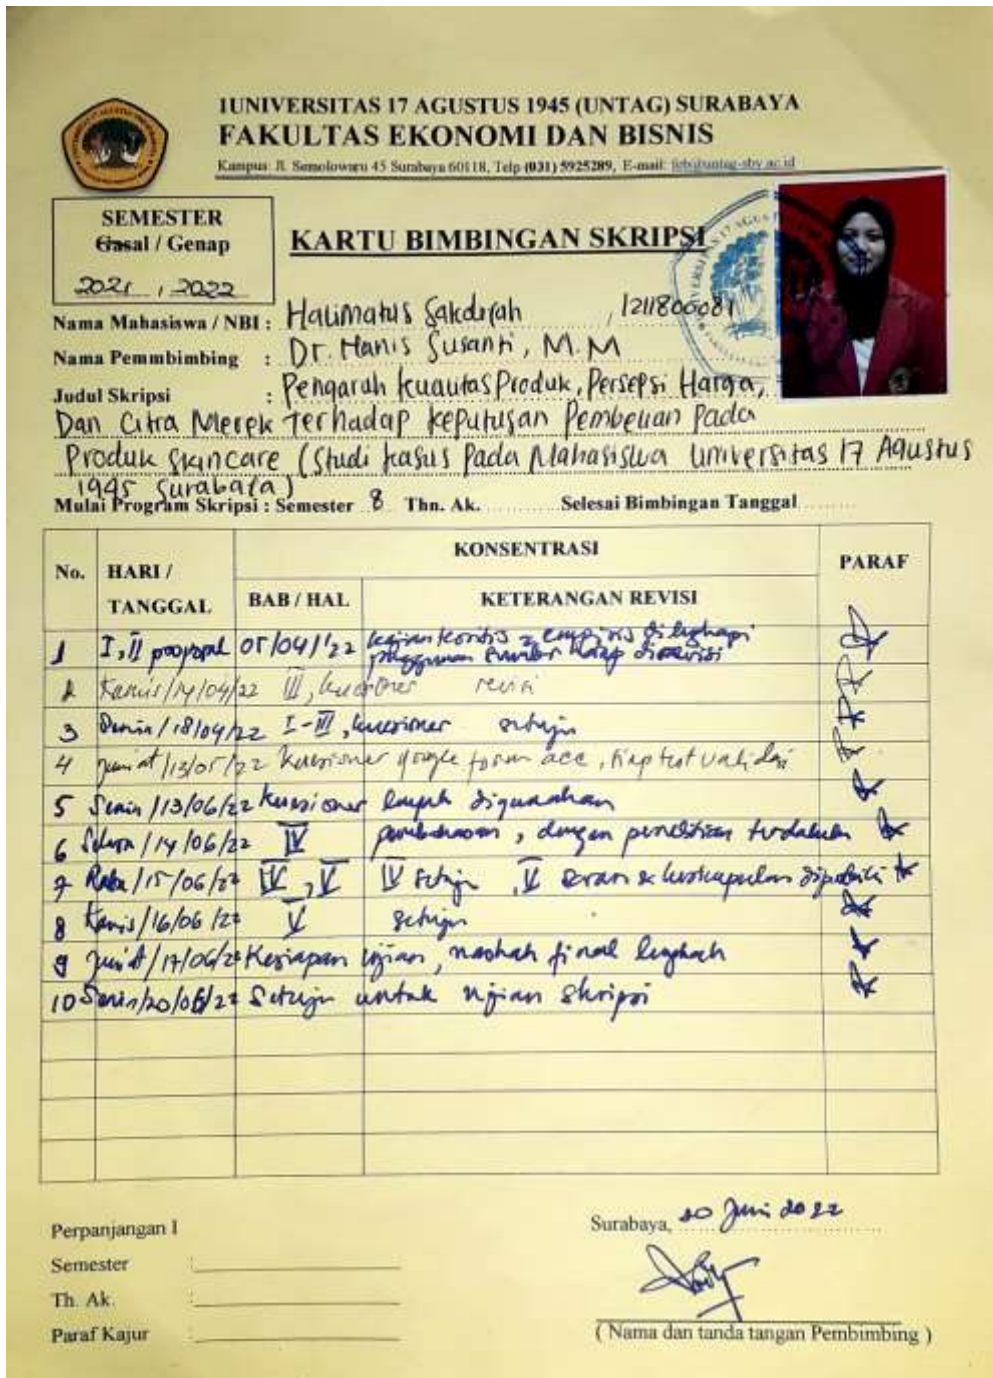 1UNIVERSITAS 17 AGUSTUS 1945 (UNTAG) SURABAYA
FAKULTAS EKONOMI DAN BISNIS
Kampus: Jl. Semolowaru 45 Surabaya 60118, Telp (031) 5925289, E-mail: feb@untag-sby.ac.id
SEMESTER
Gasal / Genap
2021 , 2022
KARTU BIMBINGAN SKRIPSI
Nama Mahasiswa / NBI : Halimatus Sakdiyah , 1211800081
Nama Pemmbimbing : Dr. Hanis Susanti, M.M
Judul Skripsi : Pengaruh Kualitas Produk, Persepsi Harga,
Dan Citra Merek Terhadap Keputusan Pembelian Pada
Produk Skincare (Studi Kasus Pada Mahasiswa Universitas 17 Agustus
1945 Surabaya)
Mulai Program Skripsi : Semester 8 Thn. Ak. Selesai Bimbingan Tanggal
No. HARI / TANGGAL KONSENTRASI PARAF
BAB / HAL KETERANGAN REVISI
1 I, II proposal 05/04/'22 kajian teoritis & empiris dilengkapi
2 Kamis/14/04/22 III, kuesioner revisi
3 Senin/18/04/22 I-III, kuesioner setuju
4 Jum'at/13/05/22 Kuesioner google form acc, siap test validasi
5 Senin/13/06/22 Kuesioner digunakan
6 Selasa/14/06/22 IV pembahasan, dengan penelitian terdahulu
7 Rabu/15/06/22 IV, V IV setuju, V saran & kesimpulan diperbaiki
8 Kamis/16/06/22 V setuju
9 Jum'at/17/06/22 Kesiapan ujian, naskah final lengkap
10 Senin/20/06/22 Setuju untuk ujian skripsi
Perpanjangan I
Semester :
Th. Ak. :
Paraf Kajur :
Surabaya, 20 Juni 2022
( Nama dan tanda tangan Pembimbing )